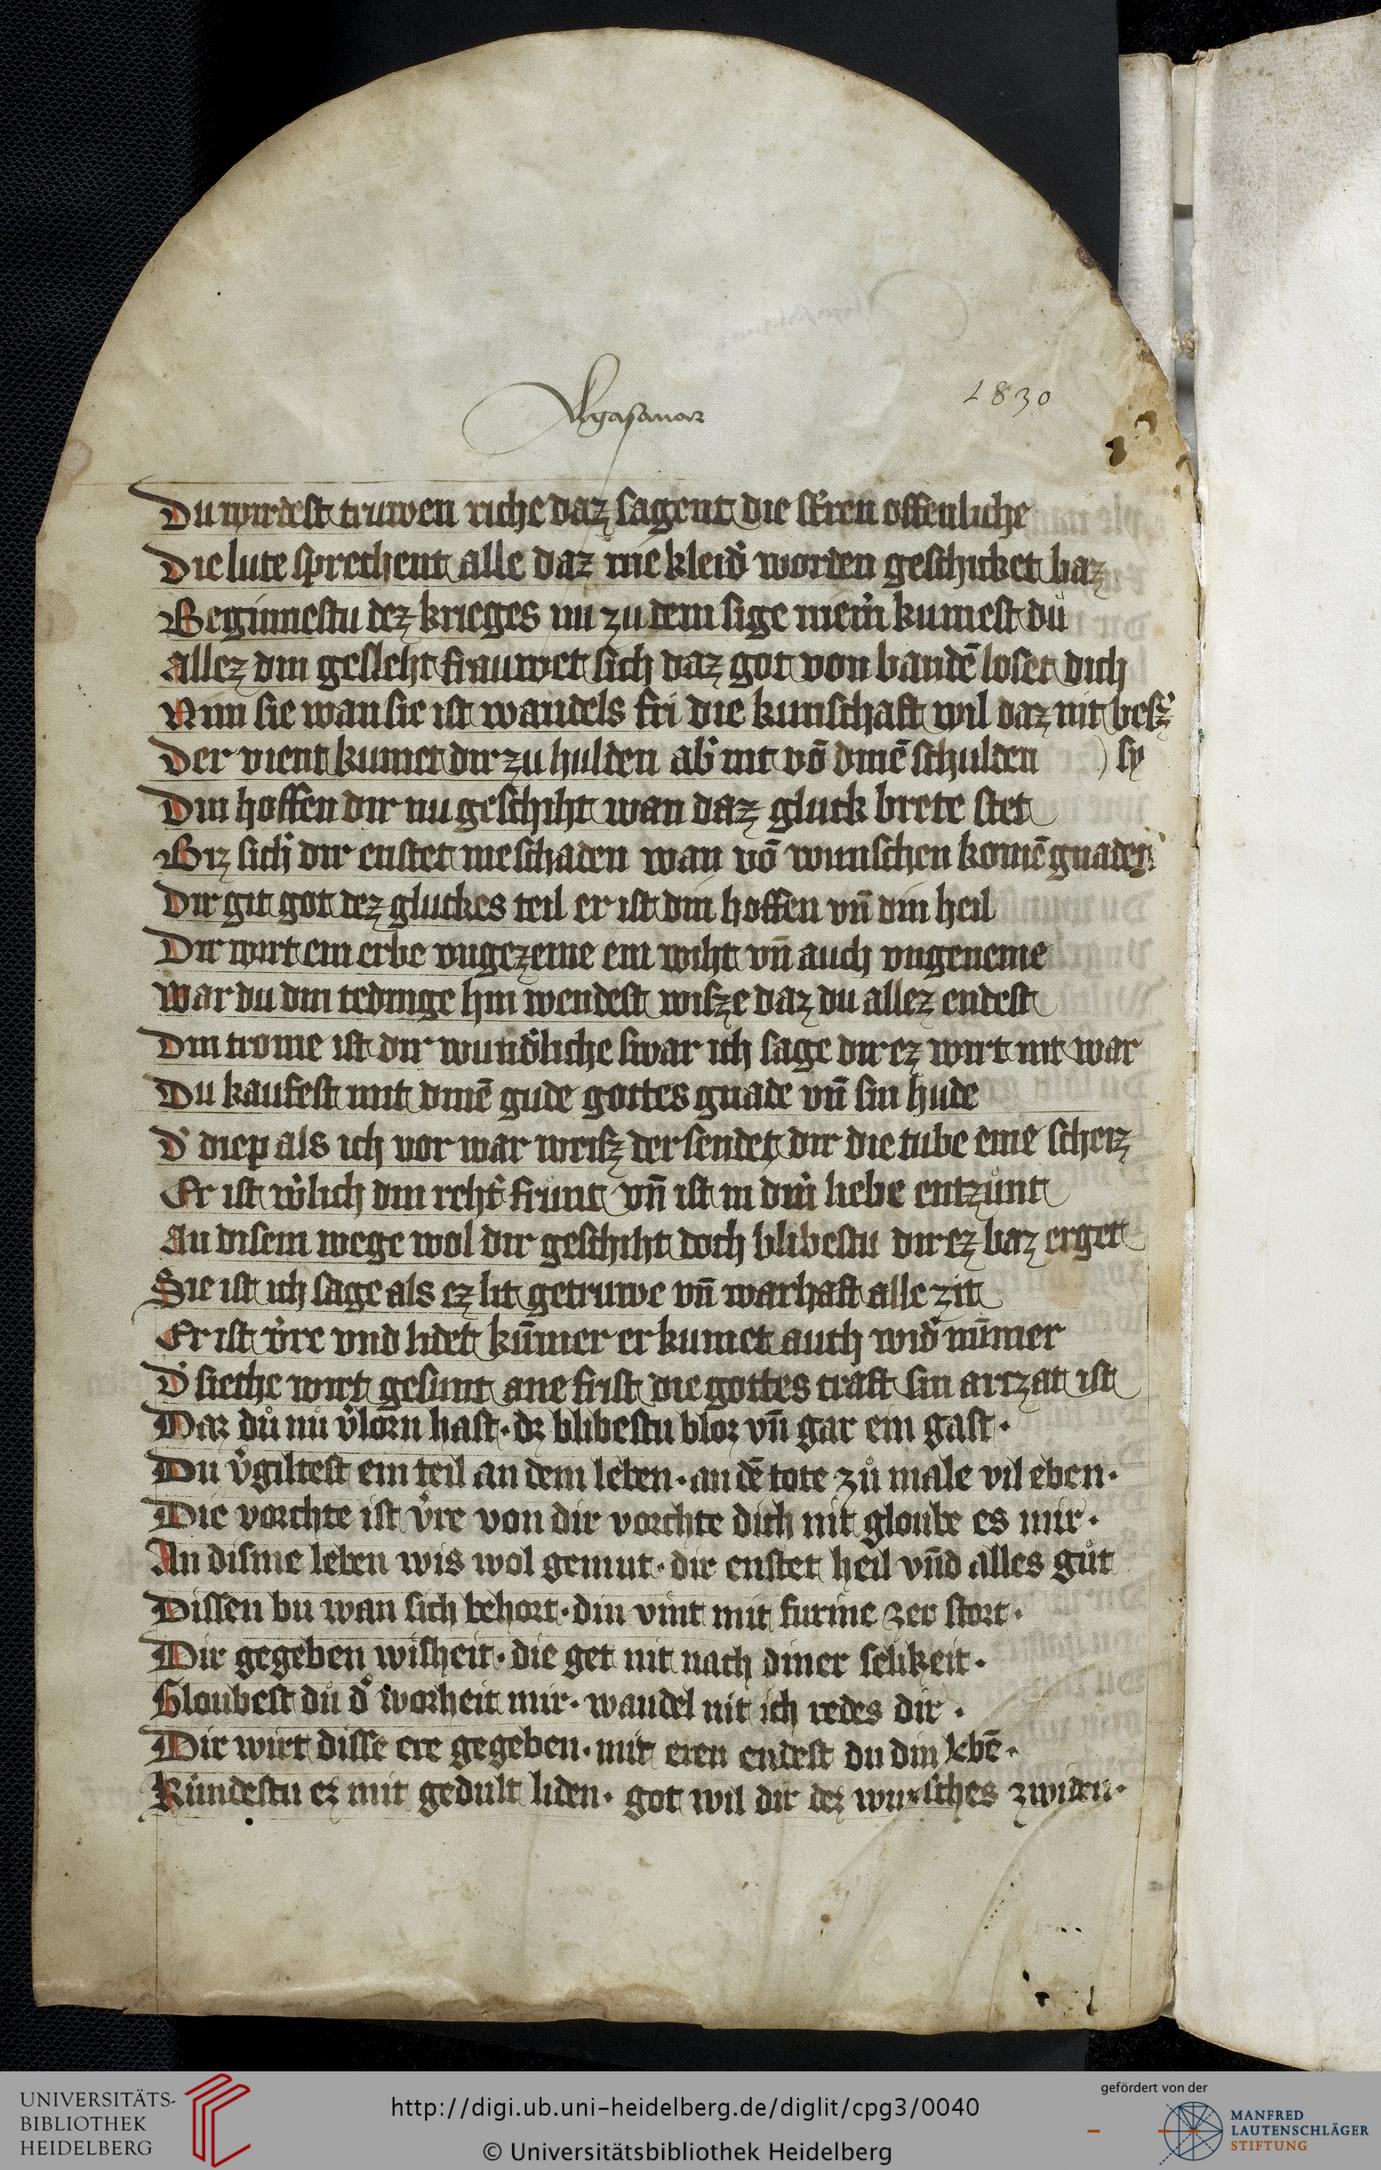 1830
Du wirdest truwen riche daz sagent die stern offenliche
Die lute sprechent alle daz nie kleid᾽ worden geschicket baz
Beginnestu dez krieges nu zu dem sige niem᾽ kumest du
Allez din gesleht frauwet sich daz got von bandē loset dich
Nim sie wan sie ist wandels fri die kunschaft wil daz nit
Der vient kumet dir zu hulden ab᾽ nit vō dinē schulden ) sy
Din hoffen dir nu geschiht wan daz gluck brete stet
Biz sich᾽ dir enstet nie schaden wan vō wunschen komē gnaden
Dir git got dez gluckes teil er ist din hoffen vn̄ din heil
Dir wirt ein erbe vngezeme ein wiht vn̄ auch vngeneme
War du din tedinge hin wendest wisze daz du allez endest
Din trome ist dir wund᾽liche swar ich sage dir ez wirt nit war
Du kaufest mit dinē gude gottes gnade vn̄ sin hude
D᾽ diep als ich vor war weisz der sendet dir die tube eine scheiz
Er ist w᾽lich din reht᾽ frunt vn̄ ist in din᾽ liebe entzůnt
An disem wege wol dir geschiht doch blibestu dir ez baz erget
Sie ist ich sage als ez lit getruwe vn̄ warhaft alle zit
Er ist v᾽re vnd lidet kūmer er kumet auch wid᾽ nūmer
D᾽ sieche wirt gesunt ane frist die gottes craft sin artzat ist
Daz dů nů v᾽lorn hast · dz blibestu bloz vn̄ gar ein gast ·
Du v᾽giltest ein teil an dem leben · an dē tote zů male vil eben ·
Die vorchte ist v᾽re von dir vorchte dich nit gloube es mir ·
An disme leben wis wol gemut · dir enstet heil vn̄d alles gůt
Dissen bu wan sich behort · din vint mit furine zer stort ·
Dir gegeben wisheit · die get nit nach diner selikeit ·
Gloubest dů d᾽ worheit mir · wandel nit ich redes dir ·
Dir wirt disse ere gegeben · mit eren endest du din lebē ·
Kůndestu ez mit gedult liden · got wil dir dez wunsches zwiden ·
UNIVERSITÄTS-
BIBLIOTHEK
HEIDELBERG
http://digi.ub.uni-heidelberg.de/diglit/cpg3/0040
© Universitätsbibliothek Heidelberg
gefördert von der
MANFRED
LAUTENSCHLÄGER
STIFTUNG